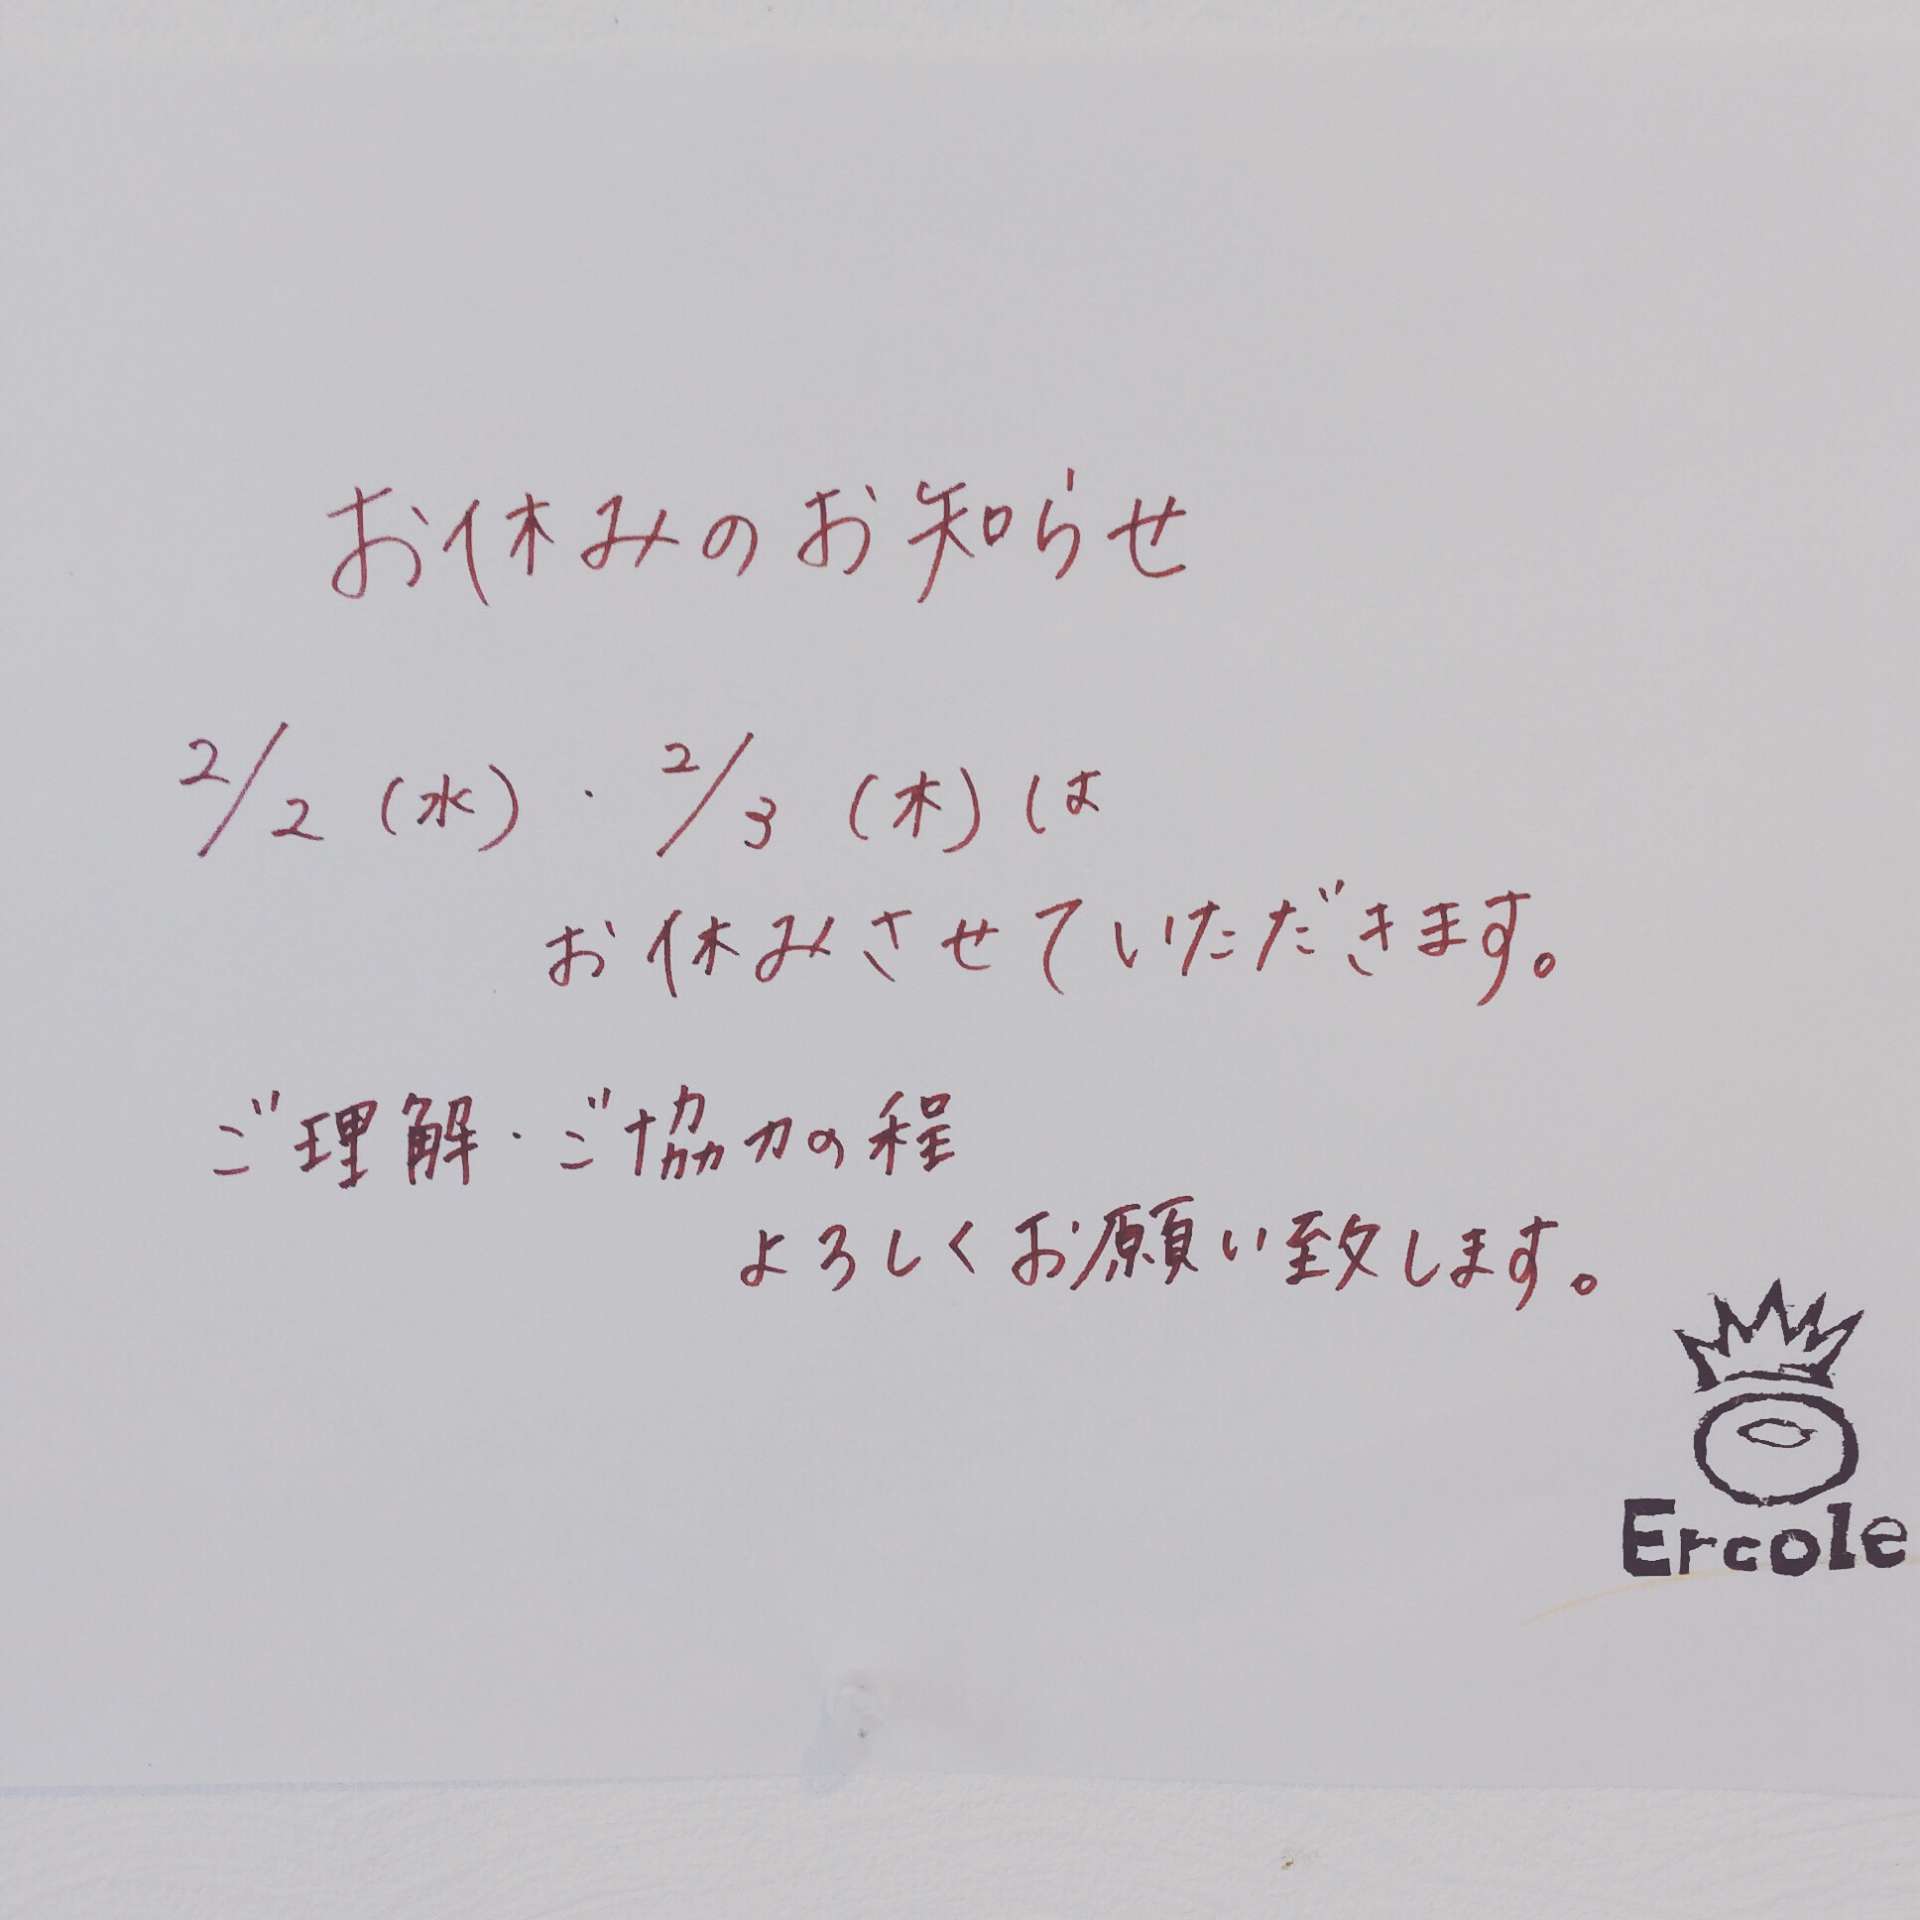 お休みのお知らせ
2/2 (水)・2/3 (木) は
お休みさせていただきます。
ご理解・ご協力の程
よろしくお願い致します。
Ercole